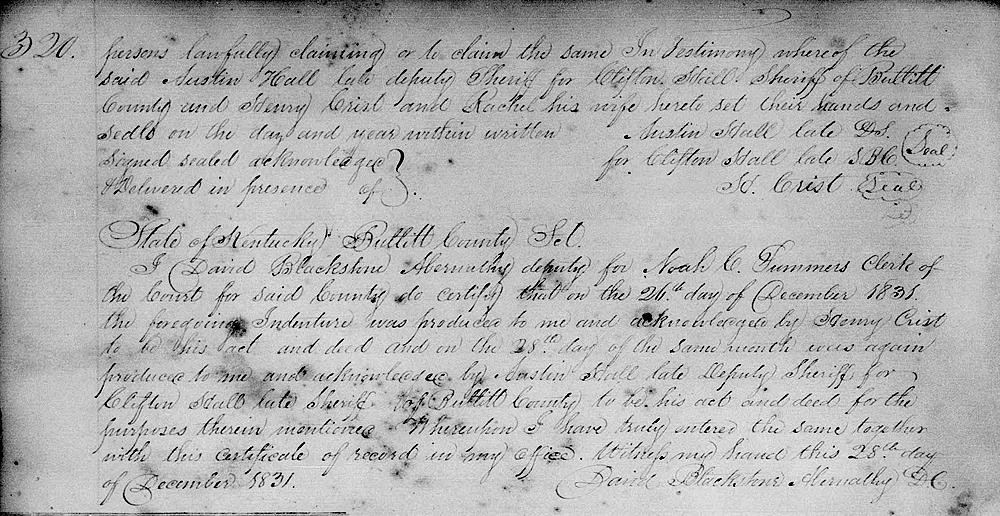 320. persons lawfully claiming or to claim the same In Testimony whereof the
said Austin Hall late deputy Sheriff for Clifton Hall Sheriff of Bullitt
County and Henry Crist and Rachel his wife hereto set their hands and
seals on the day and year within written Austin Hall late D.S.
Signed sealed acknowledged for Clifton Hall late S.B.C. Seal
& Delivered in presence of H. Crist Seal
State of Kentucky Bullitt County Sct.
I David Blackstone Abernathy deputy for Noah C. Summers Clerk of
the Court for said County do certify that on the 26th day of December 1831.
the foregoing Indenture was produced to me and acknowledged by Henry Crist
to be his act and deed and on the 28th day of the same month was again
produced to me and acknowledged by Austin Hall late Deputy Sheriff for
Clifton Hall late Sheriff of Bullitt County to be his act and deed for the
purposes therein mentioned Whereupon I have truly entered the same together
with this certificate of record in my office. Witness my hand this 28th day
of December 1831. David Blackstone Abernathy D.C.